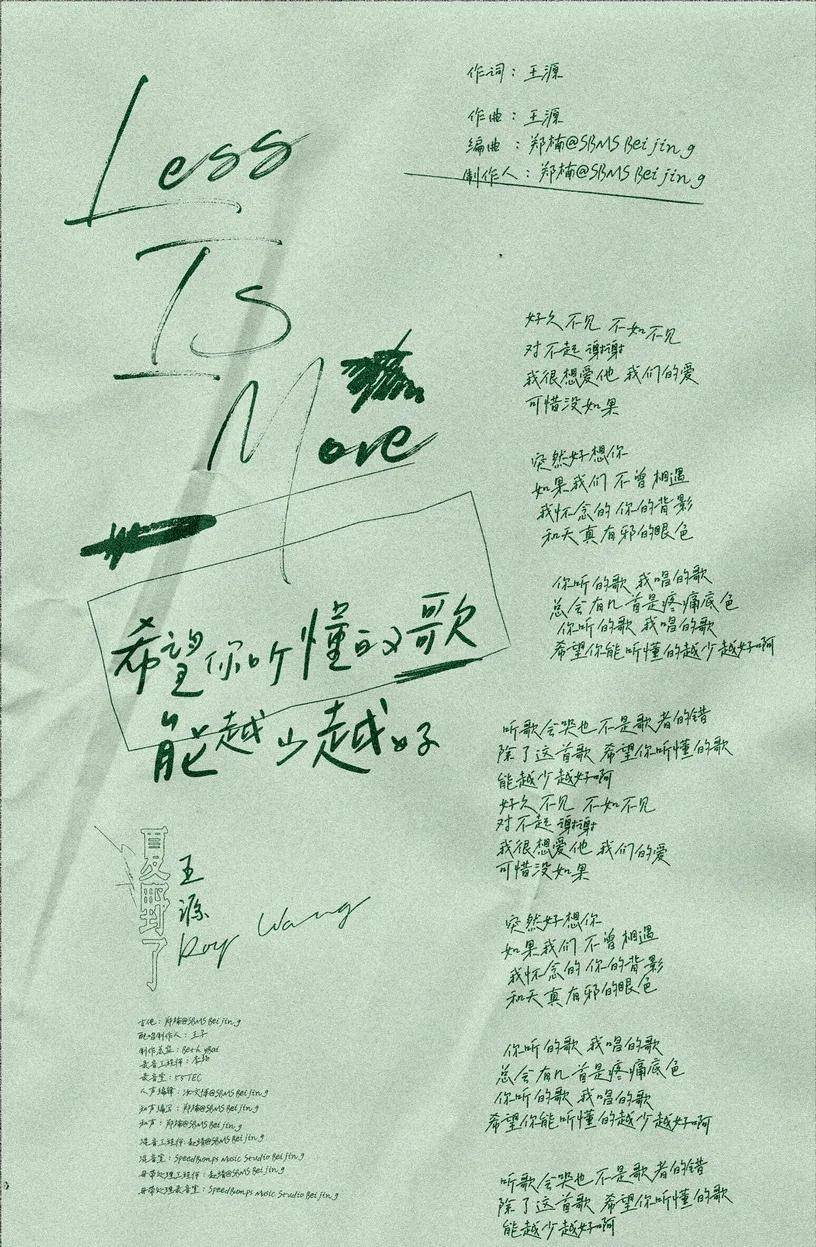 Less
Is
More
希望你听懂的歌
能越少越好
作词：王源
作曲：王源
编曲：郑楠@SBMS Beijing
制作人：郑楠@SBMS Beijing
好久不见 不如不见
对不起 谢谢
我很想爱他 我们的爱
可惜没如果
突然好想你
如果我们 不曾相遇
我怀念的 你的背影
和天真有邪的眼色
你听的歌 我唱的歌
总会有几首是疼痛底色
你听的歌 我唱的歌
希望你能听懂的越少越好啊
听歌会哭也不是歌者的错
除了这首歌 希望你听懂的歌
能越少越好啊
好久不见 不如不见
对不起 谢谢
我很想爱他 我们的爱
可惜没如果
突然好想你
如果我们 不曾相遇
我怀念的 你的背影
和天真有邪的眼色
你听的歌 我唱的歌
总会有几首是疼痛底色
你听的歌 我唱的歌
希望你能听懂的越少越好啊
听歌会哭也不是歌者的错
除了这首歌 希望你听懂的歌
能越少越好啊
夏野了
王源
Roy Wang
吉他：郑楠@SBMS Beijing
配唱制作人：王子
制作总监：
录音工程师：李
录音室：55TEC
人声编辑：@SBMS Beijing
和声编写：郑楠@SBMS Beijing
和声：郑楠@SBMS Beijing
混音工程师：赵靖@SBMS Beijing
混音室：SpeedBumps Music Studio Beijing
母带处理工程师：赵靖@SBMS Beijing
母带处理录音室：SpeedBumps Music Studio Beijing